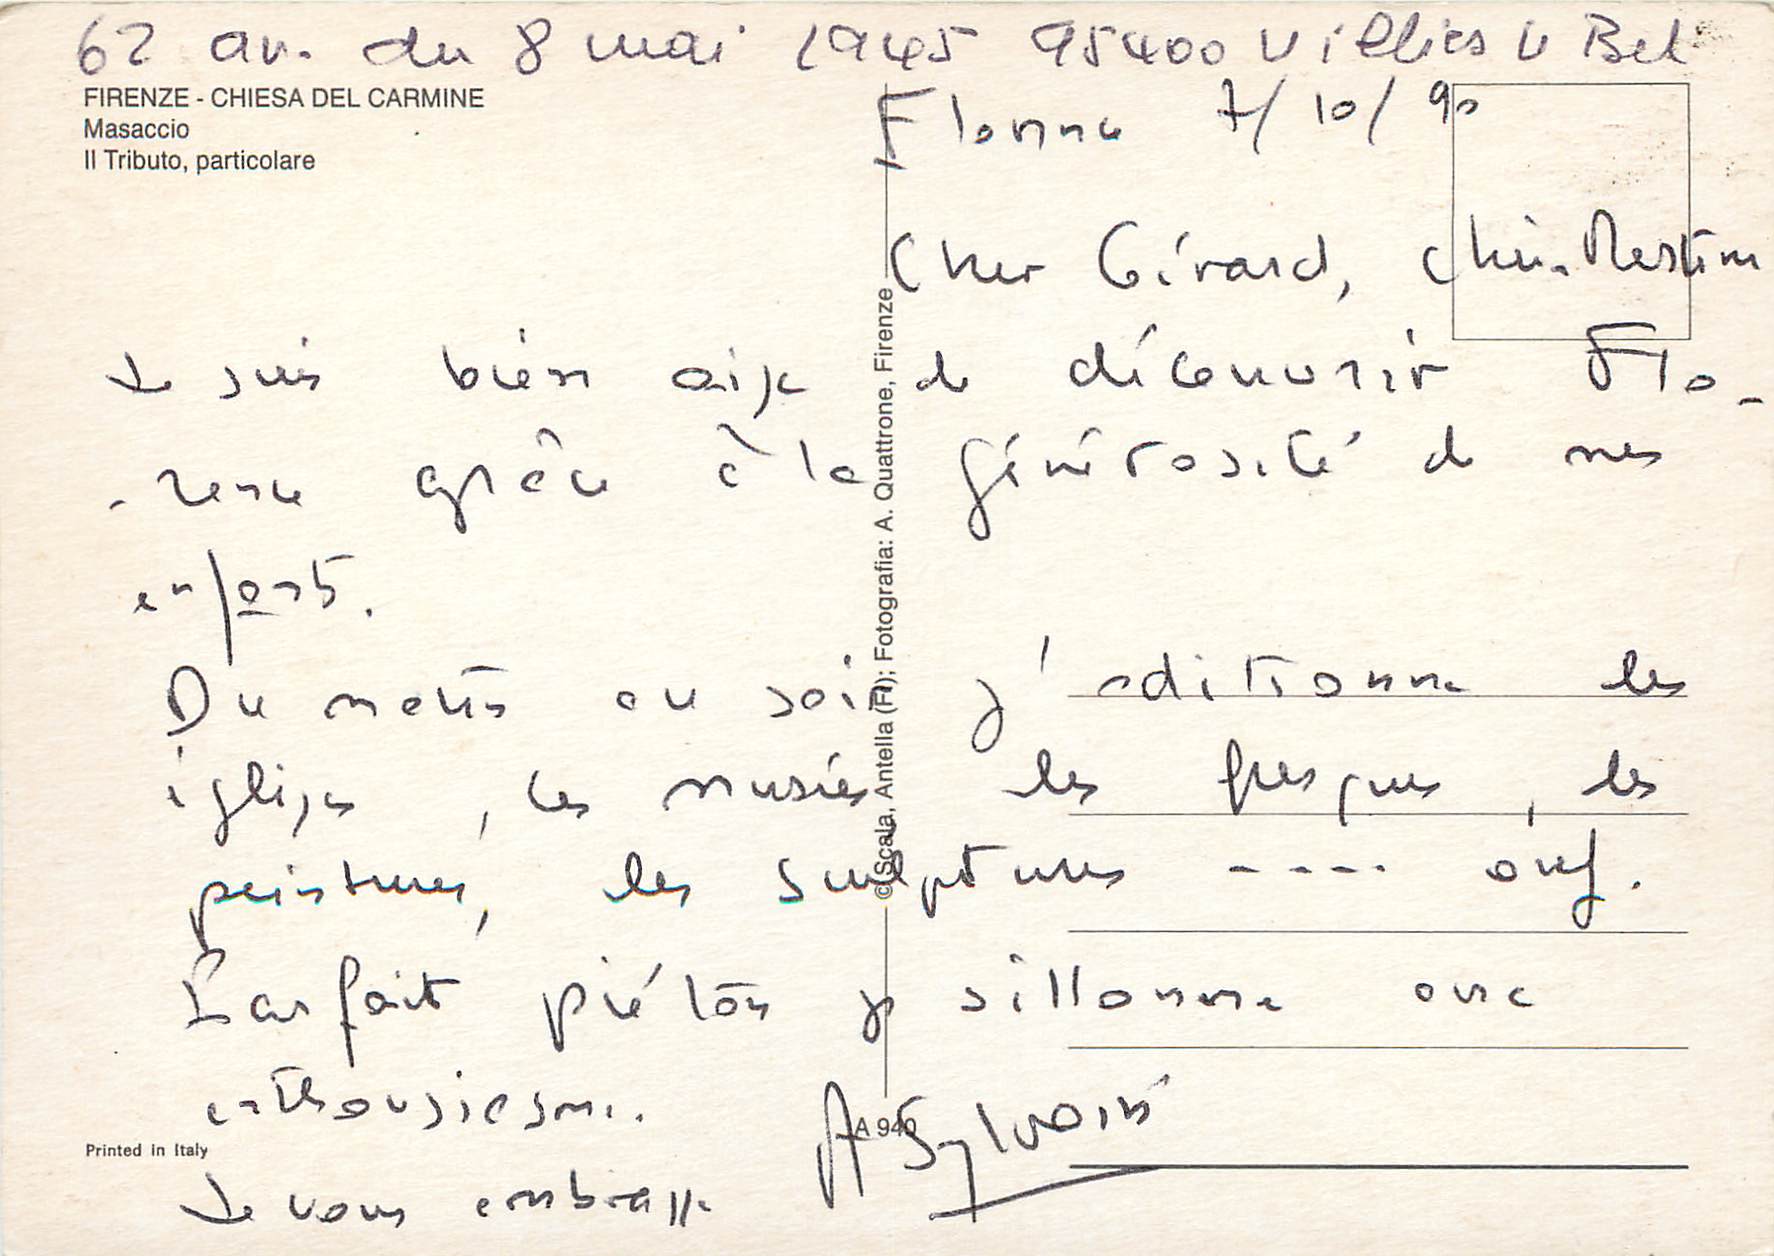 62 av. du 8 mai 1945 95400 Villiers le Bel
FIRENZE - CHIESA DEL CARMINE
Masaccio
Il Tributo, particolare
Florence 7/10/90
Cher Gérard, chère
Je suis bien aise de découvrir Flo-
-rence grâce à la générosité de mes
enfants.
Du matin au soir j'additionne les
églises, les musées les fresques, les
peintures, les sculptures ---- ouf.
Parfait piéton je sillonne avec
enthousiasme.
Je vous embrasse
A Sylvain
© Scala, Antella (FI); Fotografia: A. Quattrone, Firenze
A 940
Printed in Italy